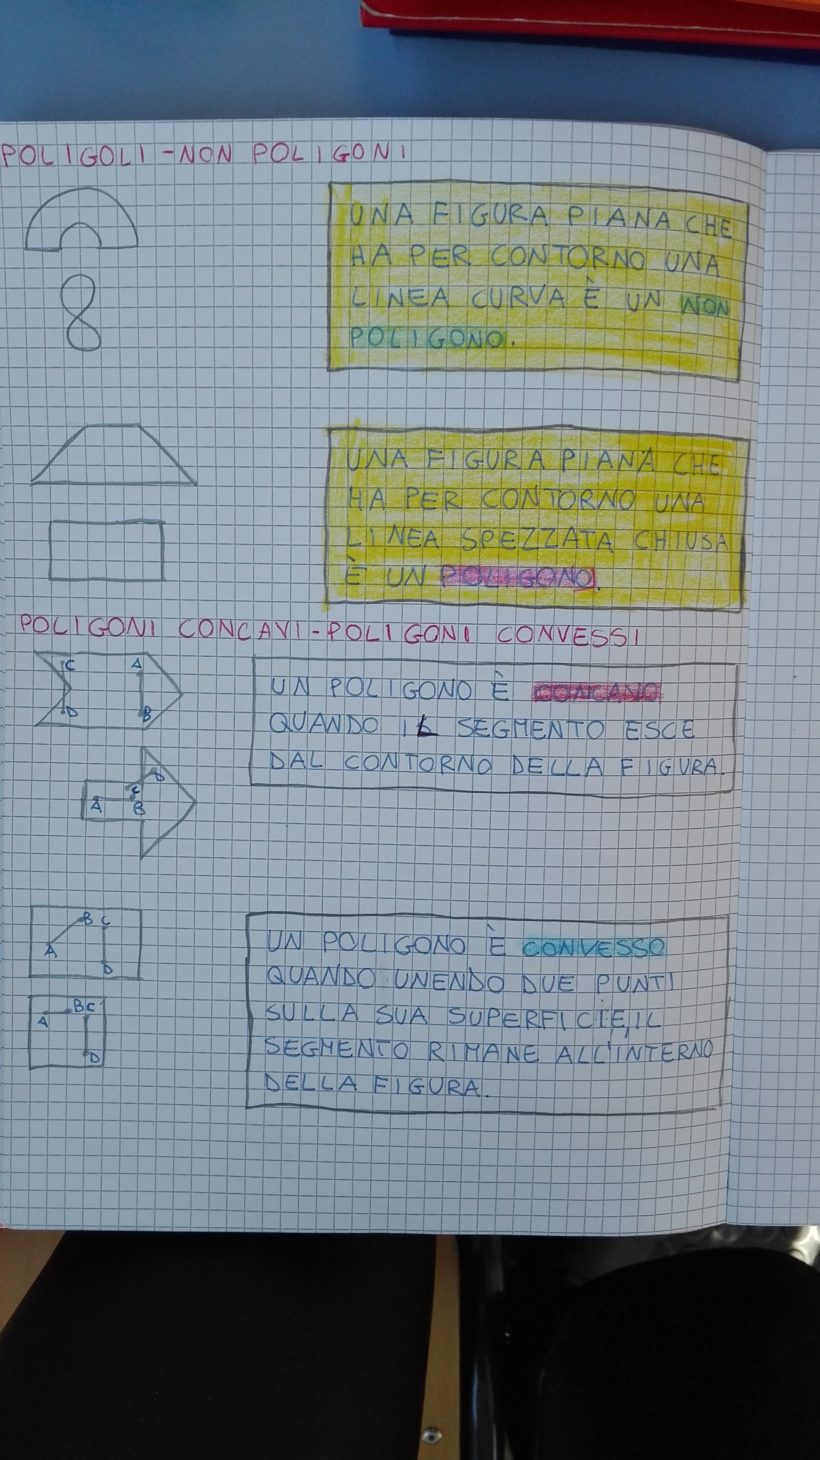 POLIGOLI - NON POLIGONI
UNA FIGURA PIANA CHE
HA PER CONTORNO UNA
LINEA CURVA È UN NON
POLIGONO.
UNA FIGURA PIANA CHE
HA PER CONTORNO UNA
LINEA SPEZZATA CHIUSA
È UN POLIGONO.
POLIGONI CONCAVI - POLIGONI CONVESSI
C A
D B
UN POLIGONO È CONCAVO
QUANDO IL SEGMENTO ESCE
DAL CONTORNO DELLA FIGURA.
D
C
A B
B C
A
D
UN POLIGONO È CONVESSO
QUANDO UNENDO DUE PUNTI
SULLA SUA SUPERFICIE, IL
SEGMENTO RIMANE ALL'INTERNO
DELLA FIGURA.
B C
A
D